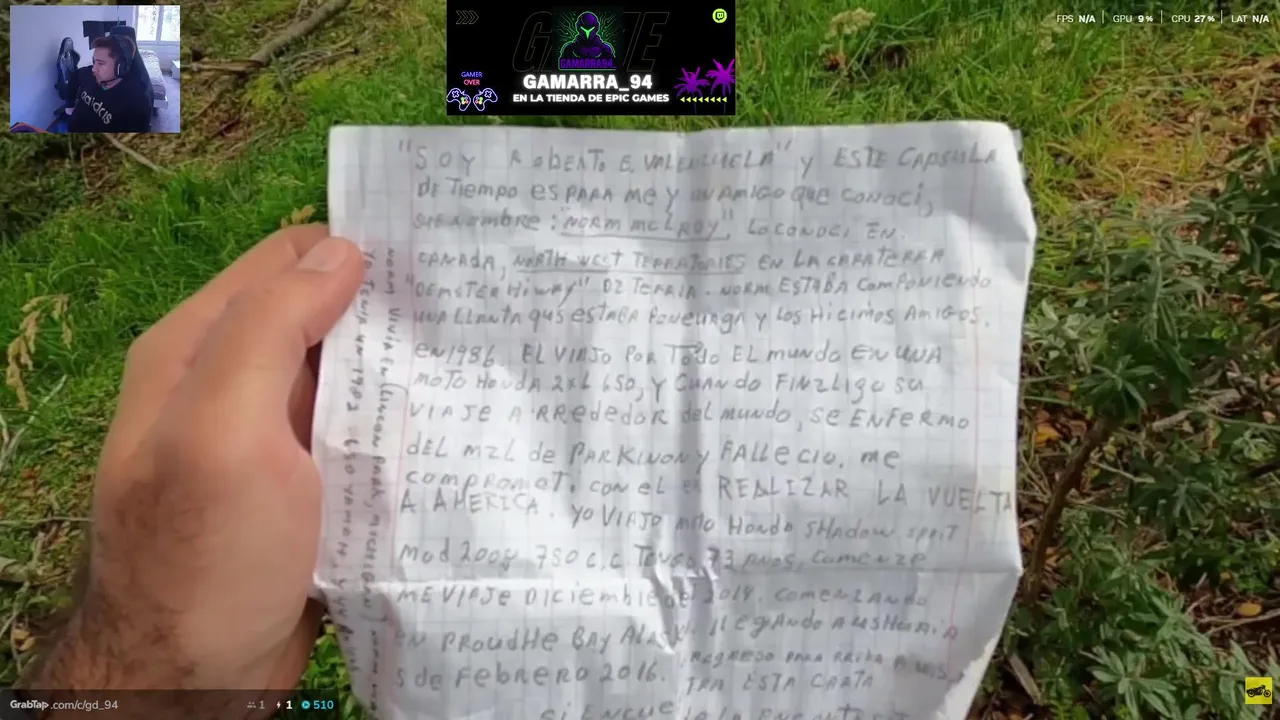 FPS N/A | GPU 9 % | CPU 27 % | LAT N/A
GAME
GAMARRA94
GAMER
OVER
GAMARRA_94
EN LA TIENDA DE EPIC GAMES
adidas
"SOY ROBERTO E. VALENZUELA" y ESTE CAPSULA
DE TIEMPO es PARA ME y UN AMIGO QUE CONOCI,
SU NOMBRE: "NORM MCLROY", LO CONOCI EN.
CANADA, NORTH WEST TERRATORIES EN LA CARATERRA
"DEMSTER HIWAY" DE TERRIA. NORM ESTABA COMPONIENDO
UNA LLANTA QUE ESTABA y LOS HICIMOS AMIGOS.
EN 1986 EL VIAJO POR TODO EL MUNDO EN UNA
MOTO HONDA 2XL 650, y CUANDO FINZLIGO SU
VIAJE A RREDEDOR del MUNDO, SE ENFERMO
DEL MZL de PARKINON y FALLECIO. ME
COMPROMET. CON EL REALIZAR LA VUELTA
A AMERICA. YO VIAJO MOTO HONDO SHADOW SPRIT
MOD 2008 750 C.C. TENGO 73 ANOS, COMENZE
ME VIAJE DICIEMBRE DEL 2014. COMENZANDO
EN PROUDHE BAY ALASK. LLEGANDO A USHUAIA
5 de FEBRERO 2016. REGRESO PARA RRIBA A
ESTA CARTA
NORM VIVIA EN LINCON PARK, MICHIGAN
YO TENIA UN 1982 650 YAMAH
GrabTap.com/c/gd_94
1 1 510